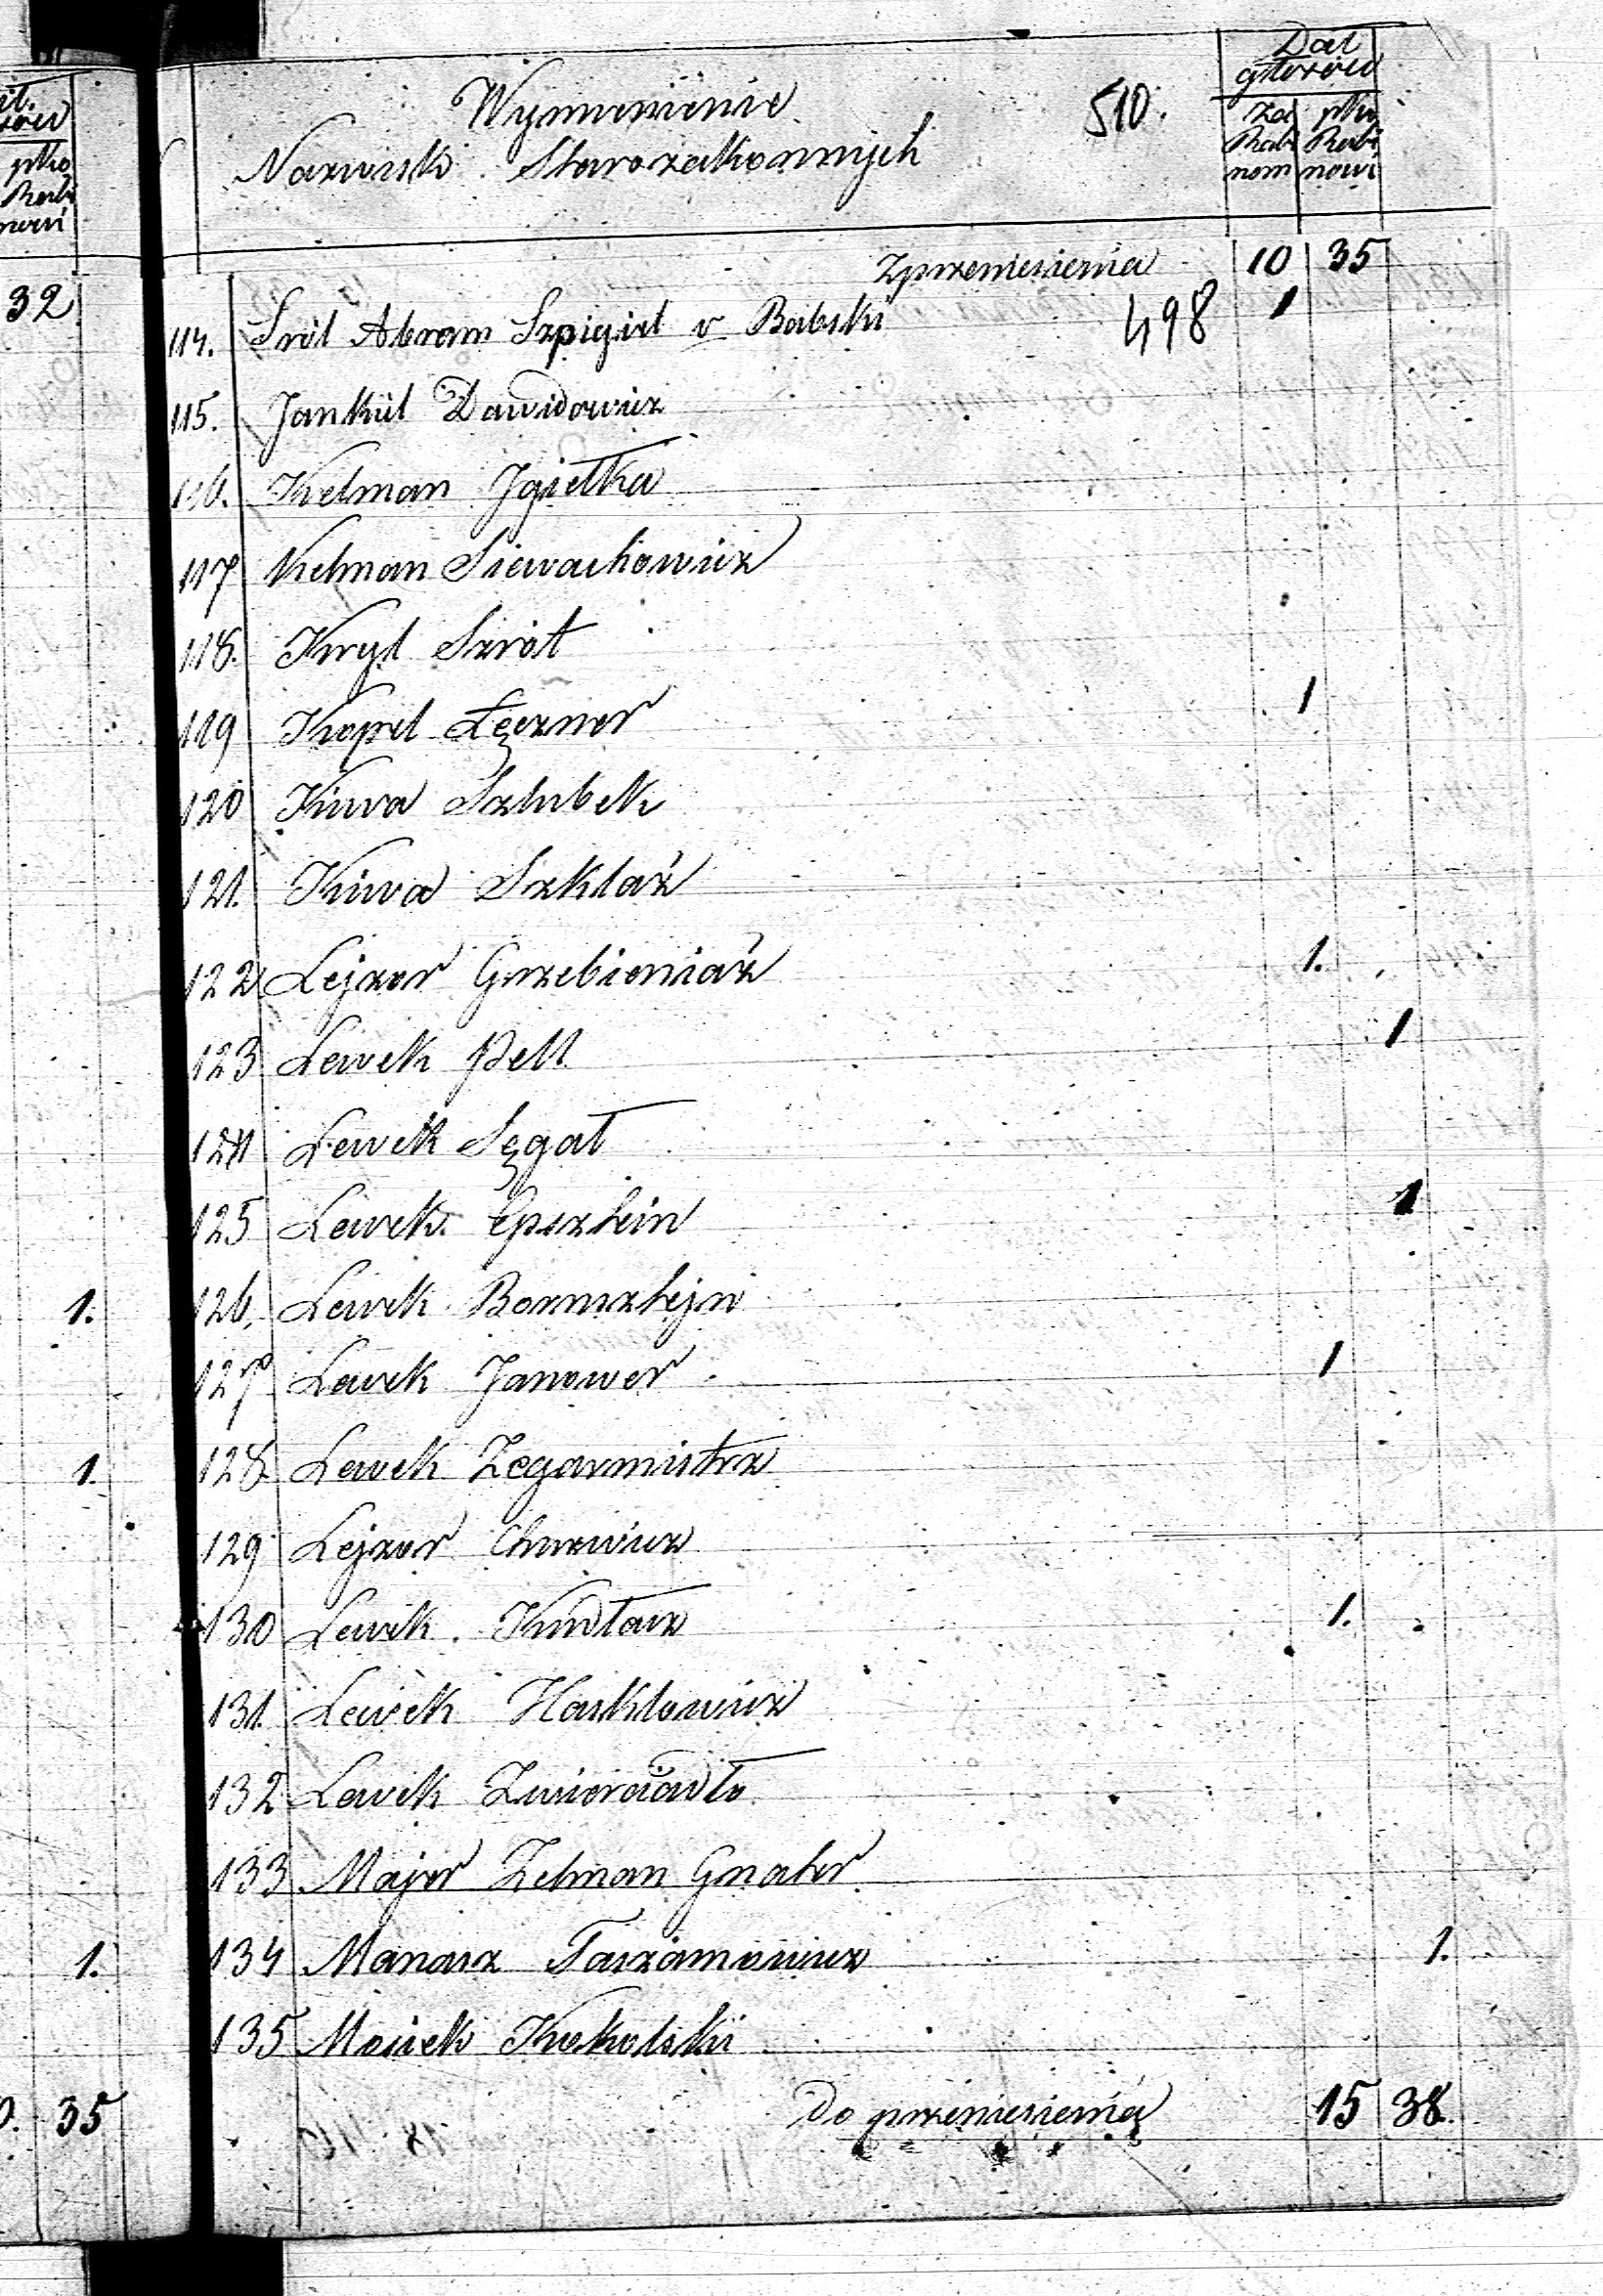 it.
sów
ptko
Rabi
nowi
32
1.
1.
1.
35
Wymienienie
Nazwisk Starozakonnych
510.
Dał
głosów
za ptko
Rabi Rabi
nom nowi
Zprzeniesienia 10 35
114. Sról Abram Szpigiel v Babski 498 1
115. Jankiel Dawidowicz
116. Kelman Igiełka
117 Kelman Siewachowicz
118. Kryl Szrót
119 Kopel Łęczner 1
120 Kiwa Szlubek
121. Kiwa Szklaż
122 Lejzer Grzebieniaż 1.
123 Lewek Pell 1
124 Lewek Sęgał
125 Lewek Epsztein 1
126. Lewek Bornsztejn
127 Lewek Janower 1
128. Lewek Zegarmistrz
129 Lejzer Churwicz
130 Lewek Kudłacz 1.
131. Lewek Haskłowicz
132 Lewek Zwierciadło
133 Majer Zelman Gnater
134 Manasz Taszamowicz 1.
135 Mosiek Kokolski
Do przeniesienia 15 38.